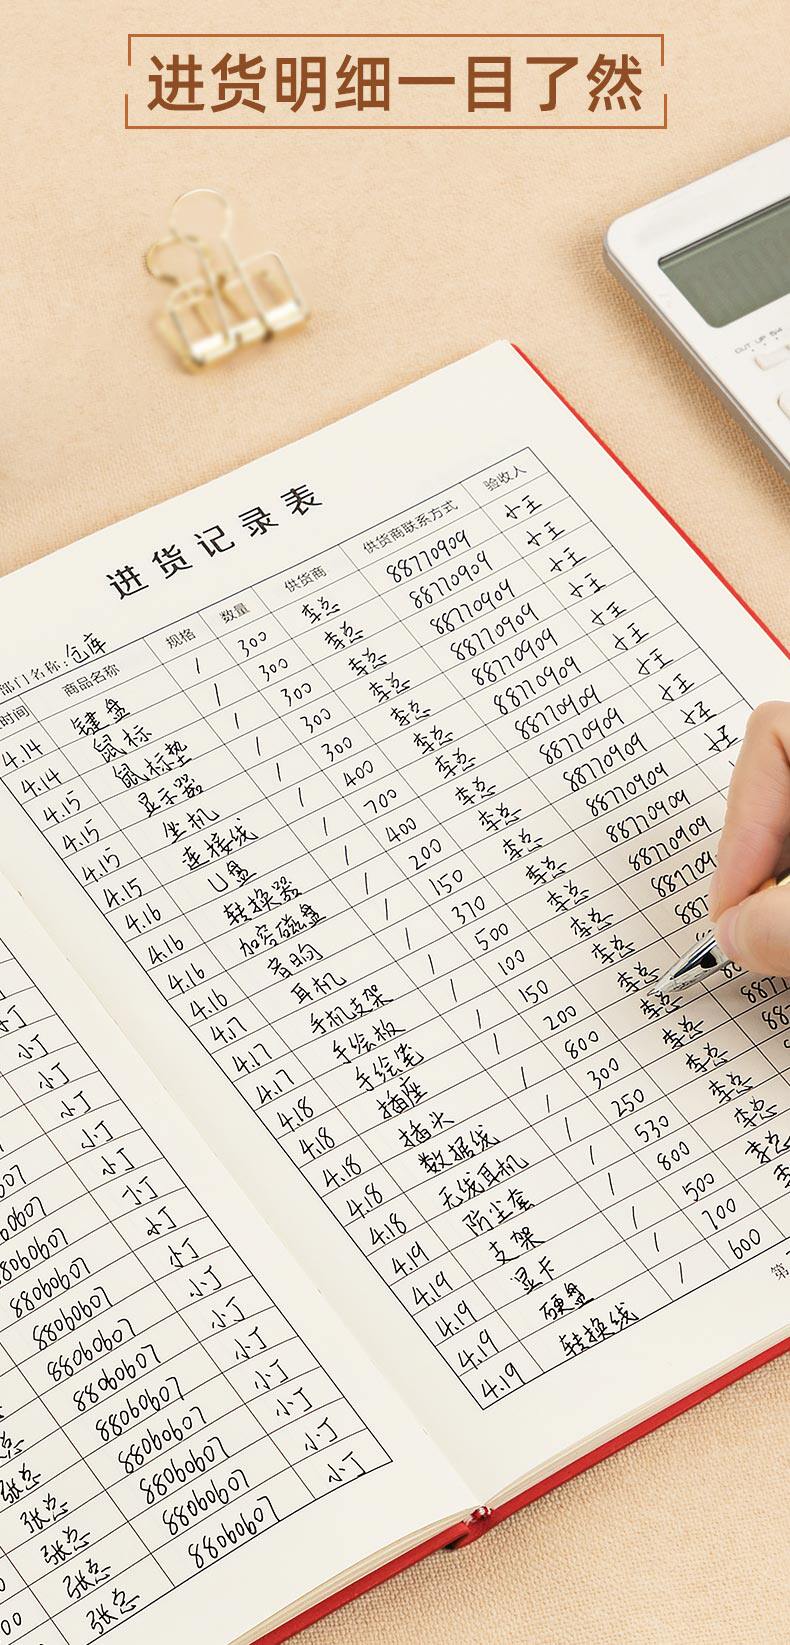 进货明细一目了然
小丁
小丁
小丁
小丁
小丁
小丁
88060607 小丁
88060607 小丁
88060607 小丁
88060607 小丁
张总 88060607 小丁
张总 88060607 小丁
张总 88060607 小丁
张总 88060607 小丁
张总 88060607 小丁
进货记录表
部门名称:仓库
时间 商品名称 规格 数量 供货商 供货商联系方式 验收人
4.14 键盘 / 300 李总 88770909 小王
4.14 鼠标 / 300 李总 88770909 小王
4.15 鼠标垫 / 300 李总 88770909 小王
4.15 显示器 / 300 李总 88770909 小王
4.15 坐机 / 300 李总 88770909 小王
4.15 连接线 / 400 李总 88770909 小王
4.16 U盘 / 700 李总 88770909 小王
4.16 转换器 / 400 李总 88770909 小王
4.16 加密磁盘 / 200 李总 88770909 小王
4.16 音响 / 150 李总 88770909 小王
4.17 耳机 / 370 李总 88770909
4.17 手机支架 / 500 李总
4.17 手绘板 / 100 李总
4.18 手绘笔 / 150 李总
4.18 插座 / 200 李总
4.18 插头 / 800 李总
4.18 数据线 / 300 李总
4.18 无线耳机 / 250 李总
4.19 防尘套 / 530 李总
4.19 支架 / 800 李总
4.19 显卡 / 500 李总
4.19 硬盘 / 700 李总
4.19 转换线 / 600
第